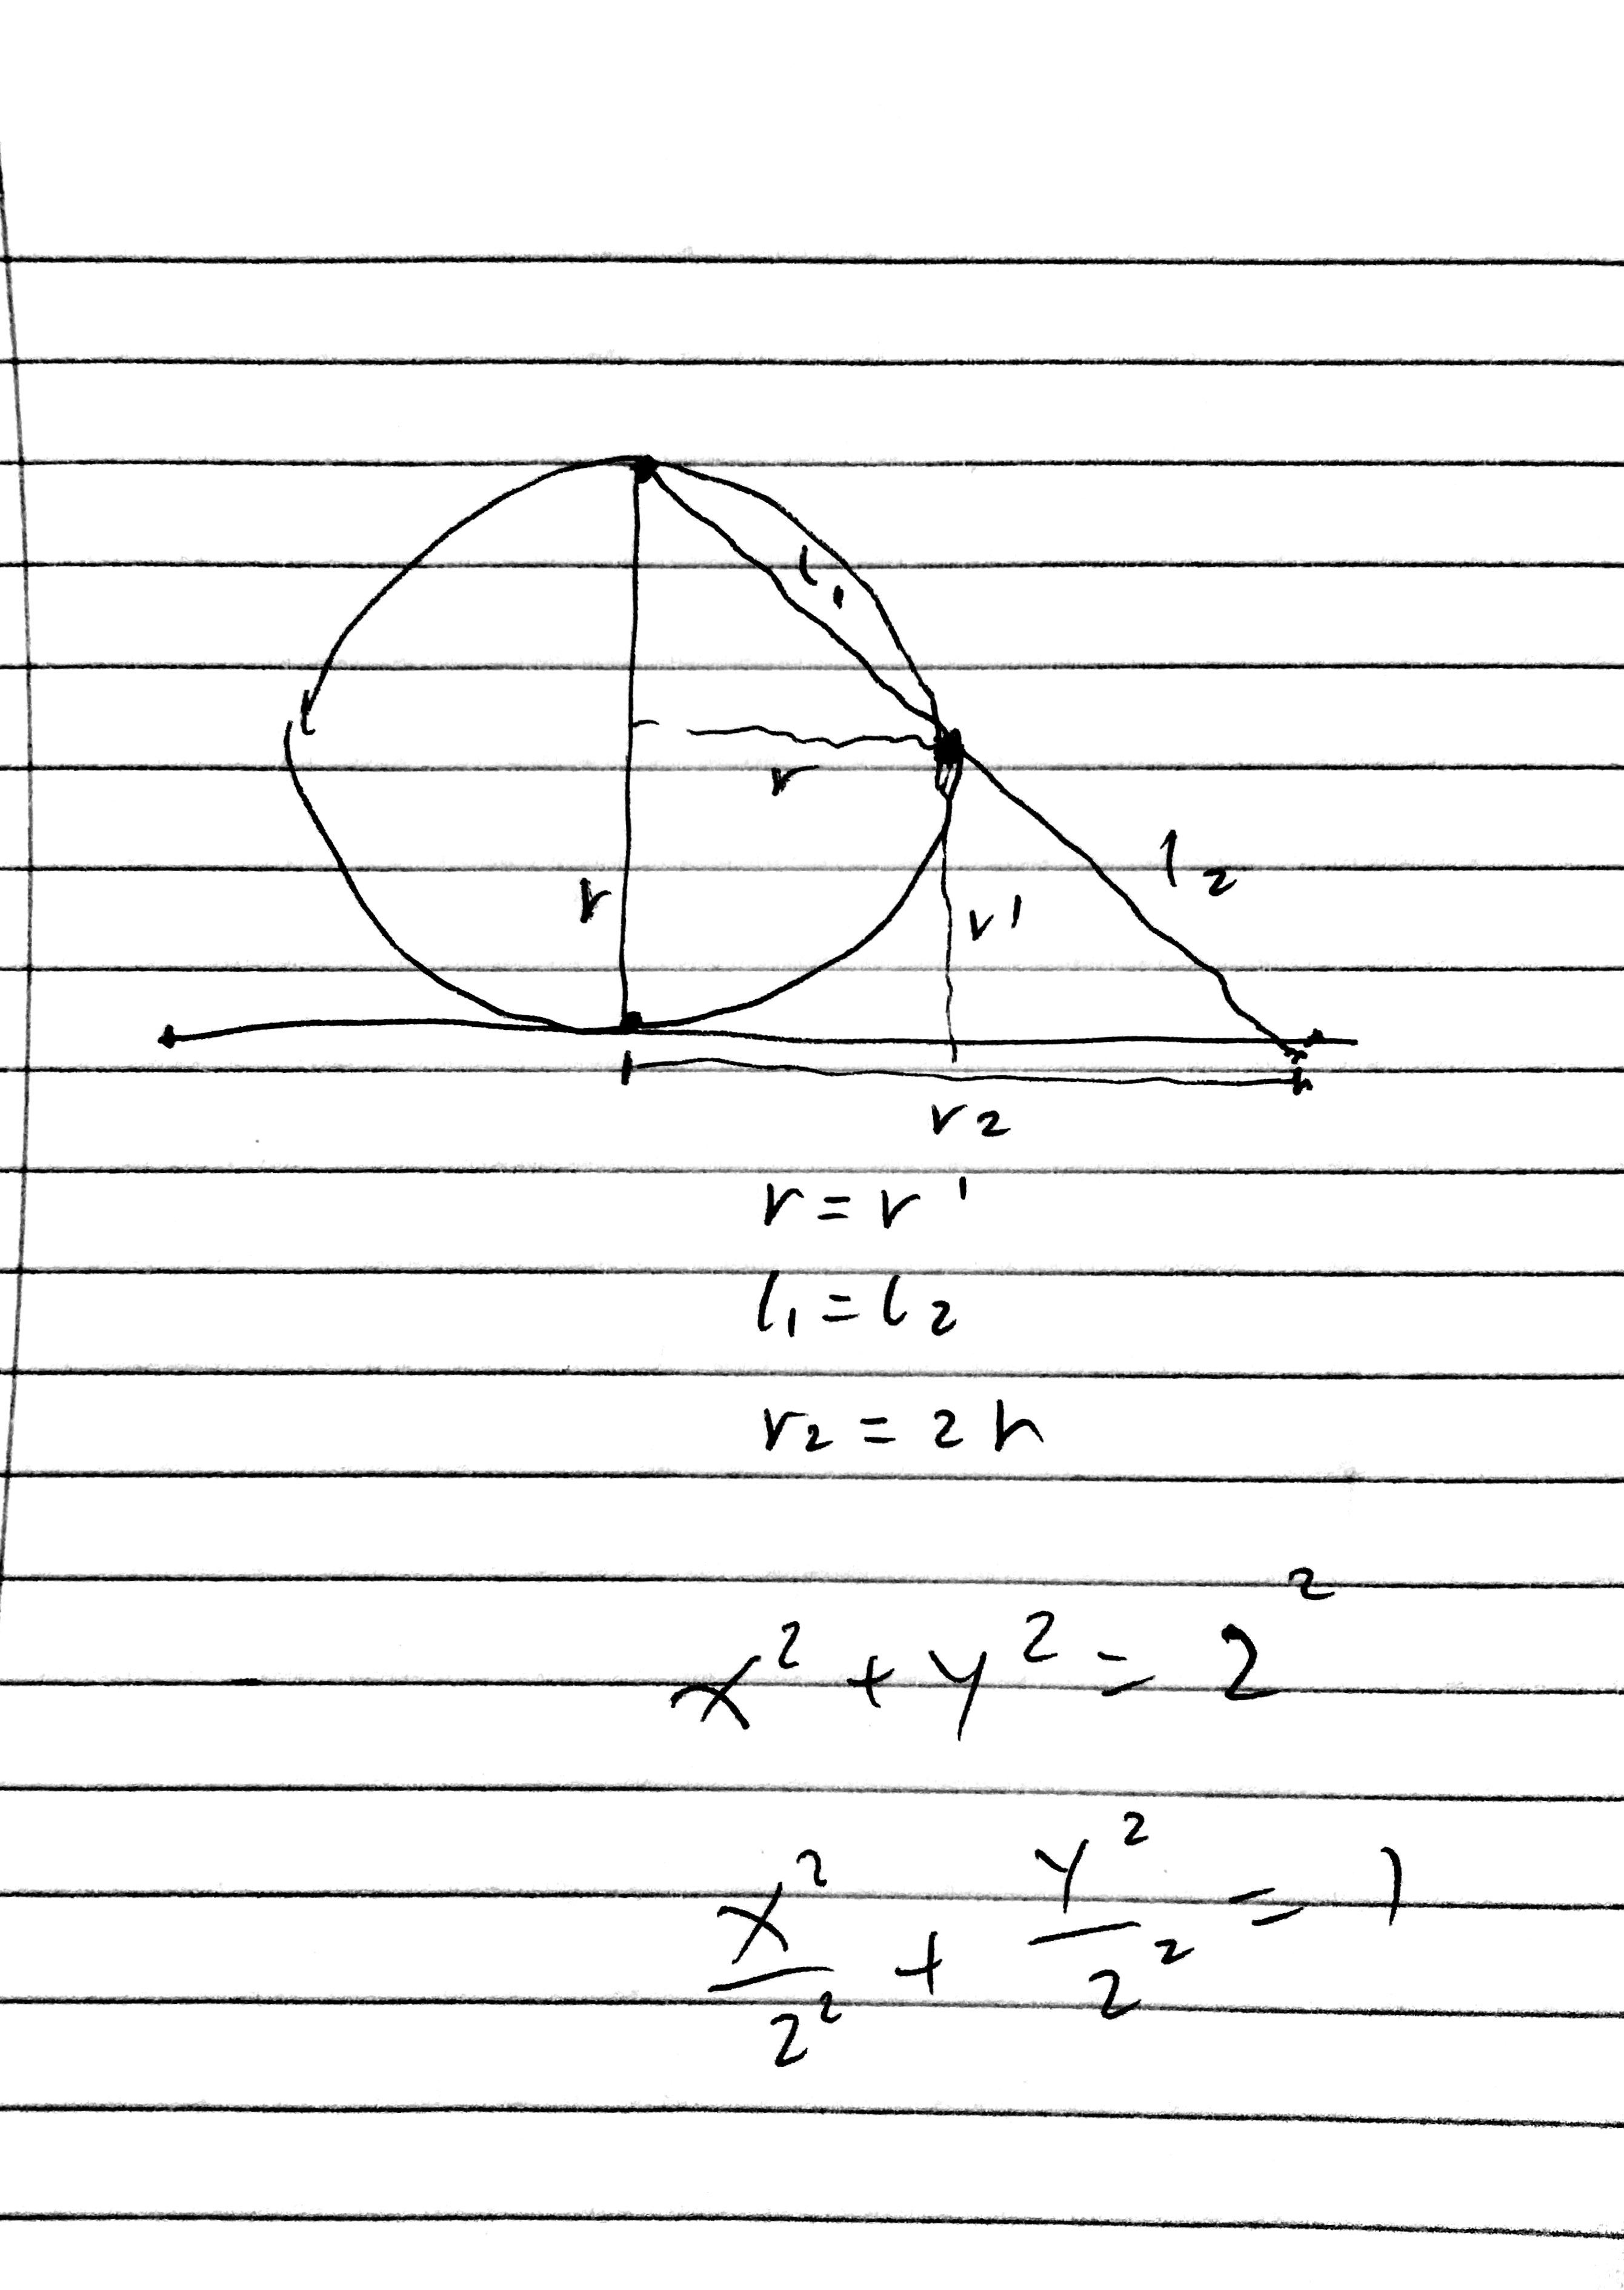 l₁
r
l₂
r
r'
r₂
r = r'
l₁ = l₂
r₂ = 2r
x² + y² = 2²
x²/2² + y²/2² = 1